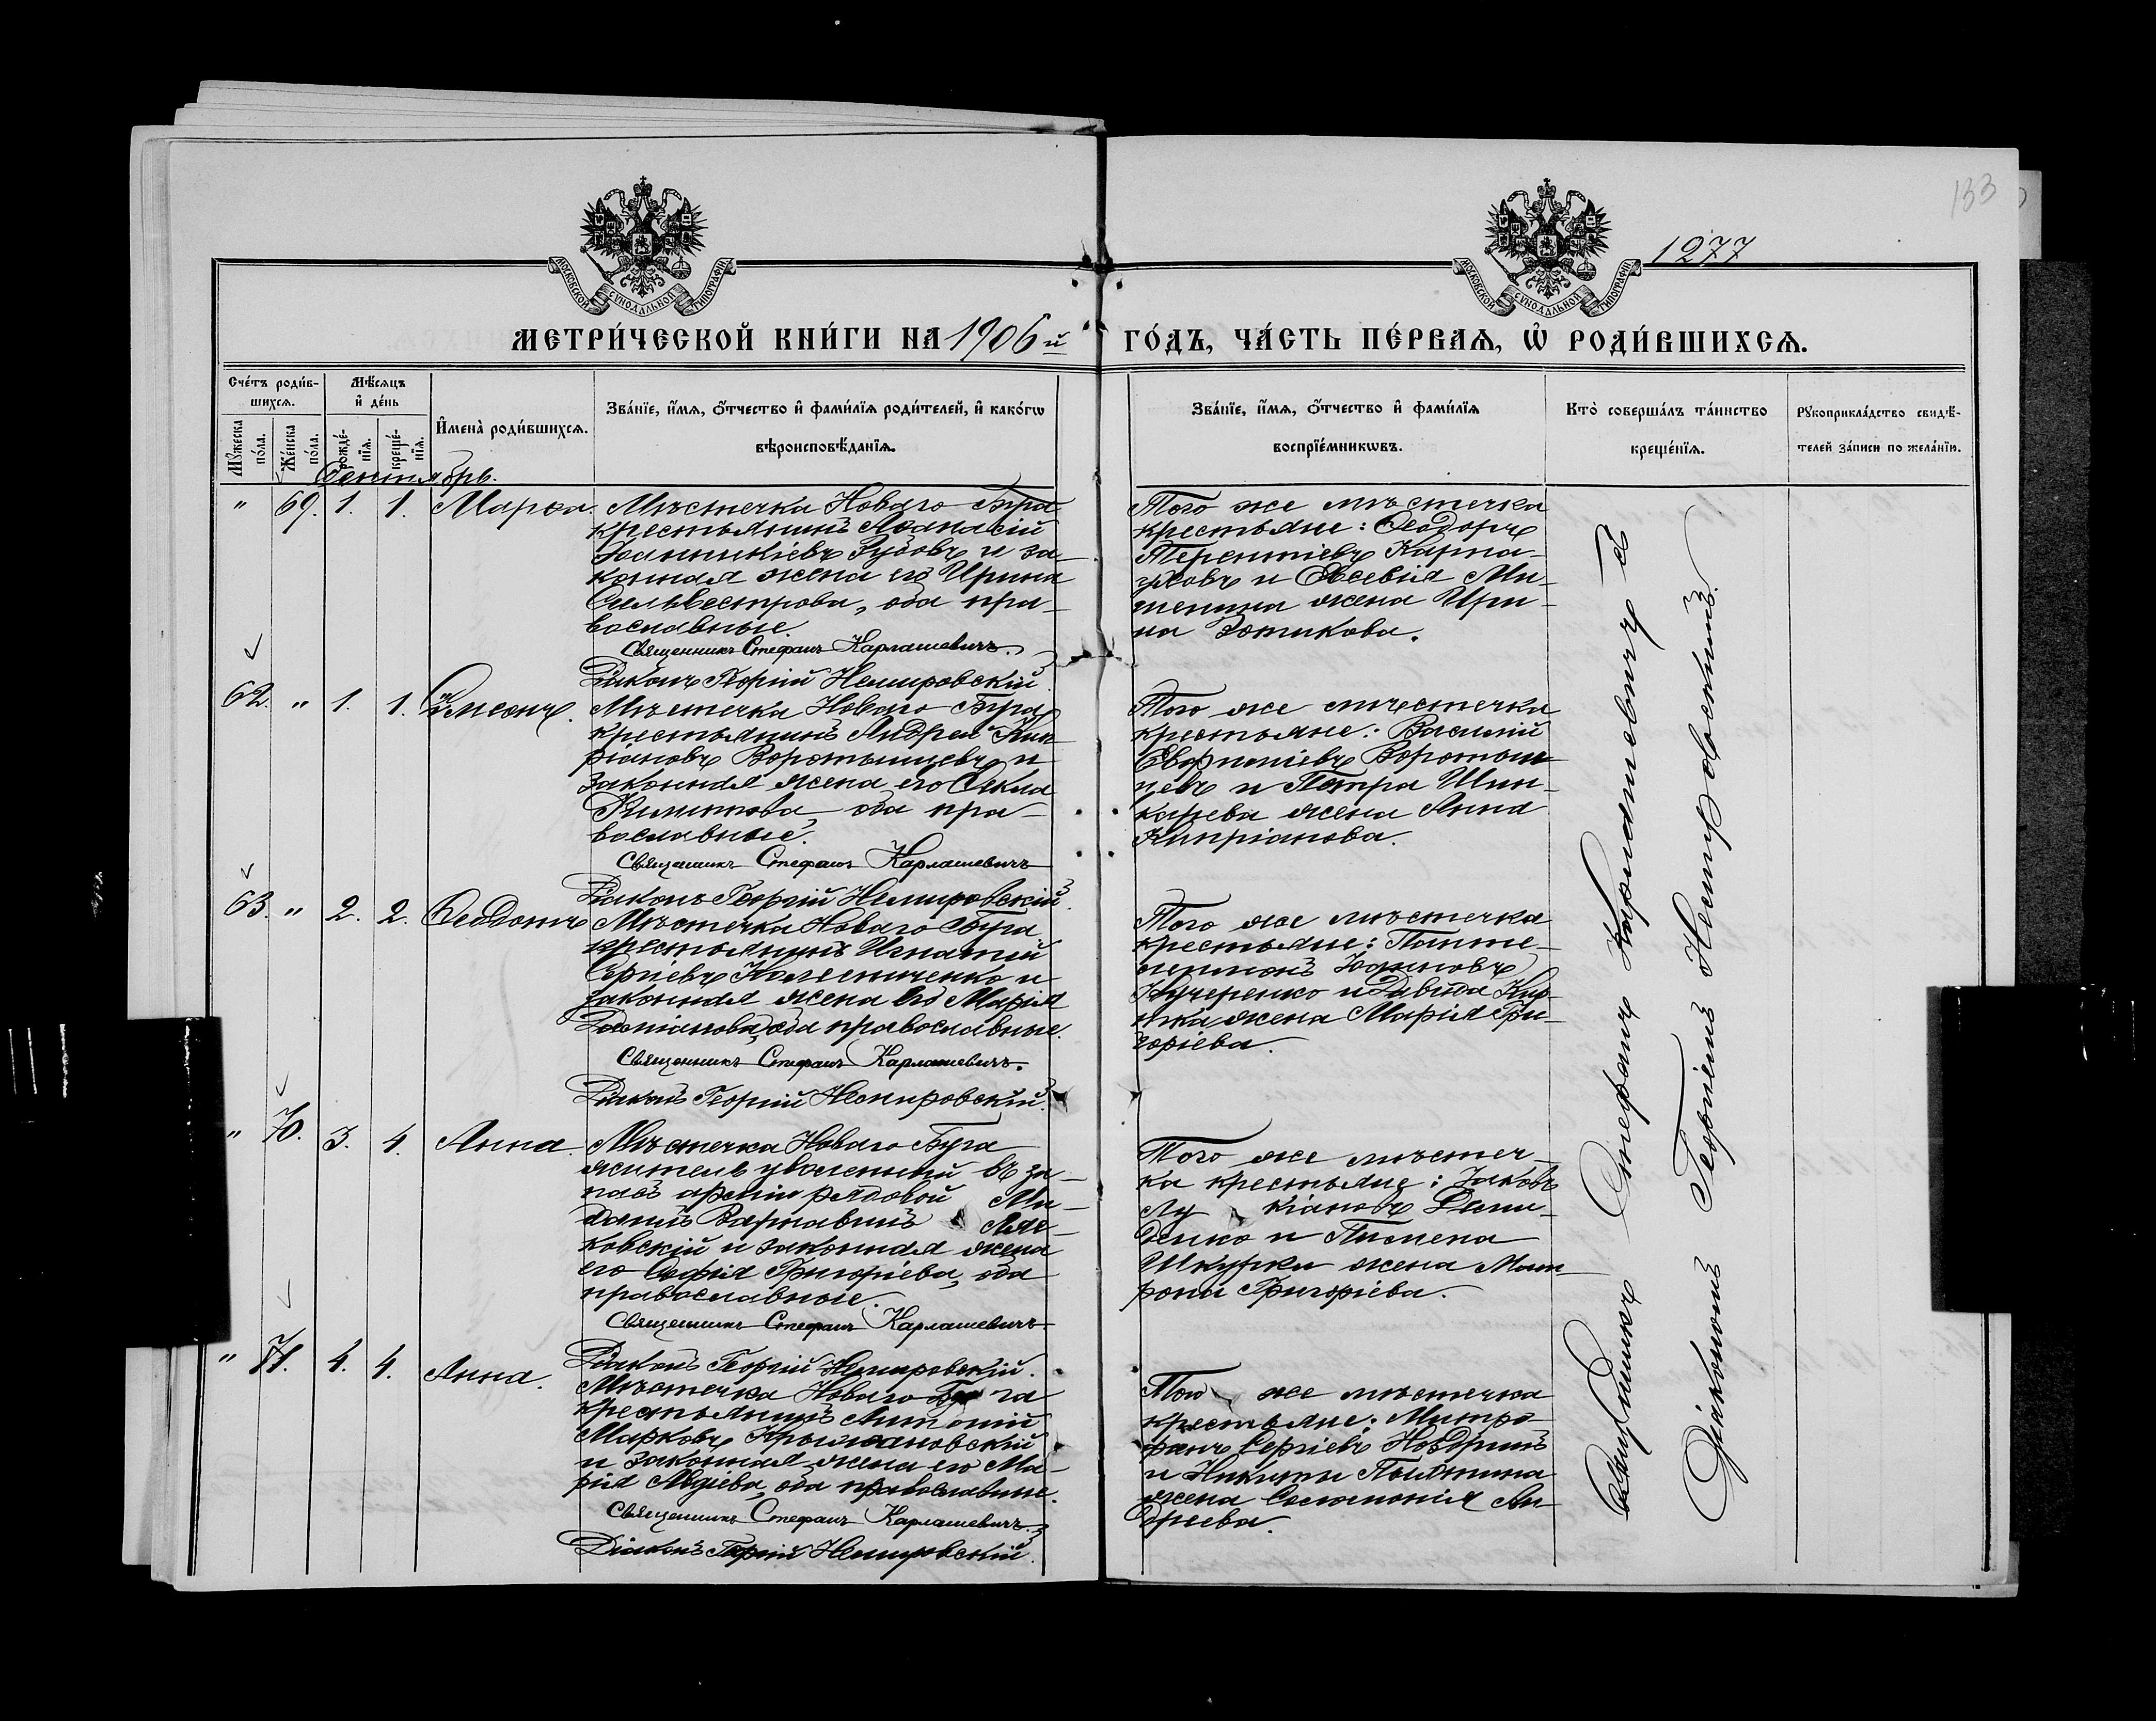 133
1277
МОСКОВСКОЙ СѴНОДАЛЬНОЙ ТИПОГРАФІИ
МОСКОВСКОЙ СѴНОДАЛЬНОЙ ТИПОГРАФІИ
МЕТРИ́ЧЕСКОЙ КНИ́ГИ НА 1906й ГО́ДЪ, ЧА́СТЬ ПЕ́РВАѦ, Ѡ҆ РОДИ́ВШИХСѦ.
Сче́тъ роди́в-
шихсѧ.
Мꙋ́жеска
по́ла.
Же́нска
по́ла.
Мѣ́сѧцъ
и҆ де́нь
рожде́-
нїѧ.
креще́-
нїѧ.
И҆мена̀ роди́вшихсѧ.
Зва́нїе, и҆́мѧ, ѻ҆́тчество и҆ фами́лїѧ роди́телей, и҆ како́гѡ
вѣроисповѣ́данїѧ.
Зва́нїе, и҆́мѧ, ѻ҆́тчество и҆ фами́лїѧ
воспрїе́мникѡвъ.
Кто̀ соверша́лъ та́инство
креще́нїѧ.
Рꙋкоприкла́дство свидѣ́-
телей за́писи по жела́нїю.
Сентябрь.
" 69. 1. 1. Марѳа.
Мѣстечка Новаго Буга
крестьянинъ Аѳанасій
Іоанникіевъ Зубовъ и за-
конная жена его Ирина
Сильвестрова, оба пра-
вославные.
Священникъ Стефанъ Карлашевичъ.
Діаконъ Георгій Немировскій
Того же мѣстечка
крестьяне: Ѳеодоръ
Терентіевъ Карна-
уховъ и Евсевія Ми-
шенина жена Ири-
на Зотикова.
62. " 1. 1. Симеонъ.
Мѣстечка Новаго Буга
крестьянинъ Андрей Кип-
ріановъ Воротынцевъ и
законная жена его Ѳекла
Филиппова, оба пра-
вославные.
Священникъ Стефанъ Карлашевичъ
Діаконъ Георгій Немировскій.
Того же мѣстечка
крестьяне: Василій
Евфиміевъ Воротын-
цевъ и Петра Шин-
карева жена Анна
Кипріанова.
63. " 2. 2. Ѳеодотъ
Мѣстечка Новаго Буга
крестьянинъ Игнатій
Сергіевъ Колесниченко и
законная жена его Марія
Даміанова, оба православные.
Священникъ Стефанъ Карлашевичъ.
Діаконъ Георгій Немировскій.
Того же мѣстечка
крестьяне: Панте-
леимонъ Іоанновъ
Кучеренко и Давида
жена Марія Гри-
горіева.
" 70. 3. 4. Анна.
Мѣстечка Новаго Буга
житель уволенный въ за-
пасъ арміи рядовой
Варнавинъ
ковскій и законная жена
его Софія Григоріева, оба
православные.
Священникъ Стефанъ Карлашевичъ.
Діаконъ Георгій Немировскій.
Того же мѣстеч-
ка крестьяне: Іаковъ
Лу кіановъ Деми-
денко и Пимена
Шкурки жена Мат-
рона Григоріева.
" 71. 4. 4. Анна.
Мѣстечка Новаго Бу га
крестьянинъ Антоній
Марковъ Крыжановскій
и законная жена его Ма-
рія Авдіева, оба православные.
Священникъ Стефанъ Карлашевичъ.
Діаконъ Георгій Немировскій.
Того же мѣстечка
крестьяне: Митро-
фанъ Сергіевъ Ноздринъ
и Никиты
жена Соломонія Ан-
дреева.
Священникъ Стефанъ Карлашевичъ съ
Діакономъ Георгіемъ Немировскимъ.